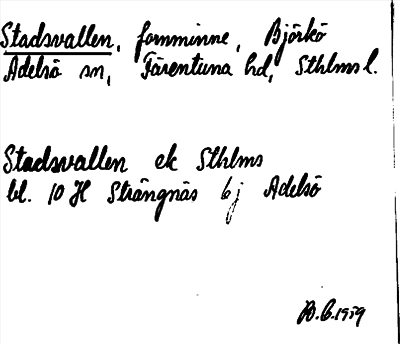 Stadsvallen, fornminne, Björkö
Adelsö sn, Färentuna hd, Sthlms l.
Stadsvallen ek Sthlms
bl. 10 H Strängnäs 6j Adelsö
B.C. 1979